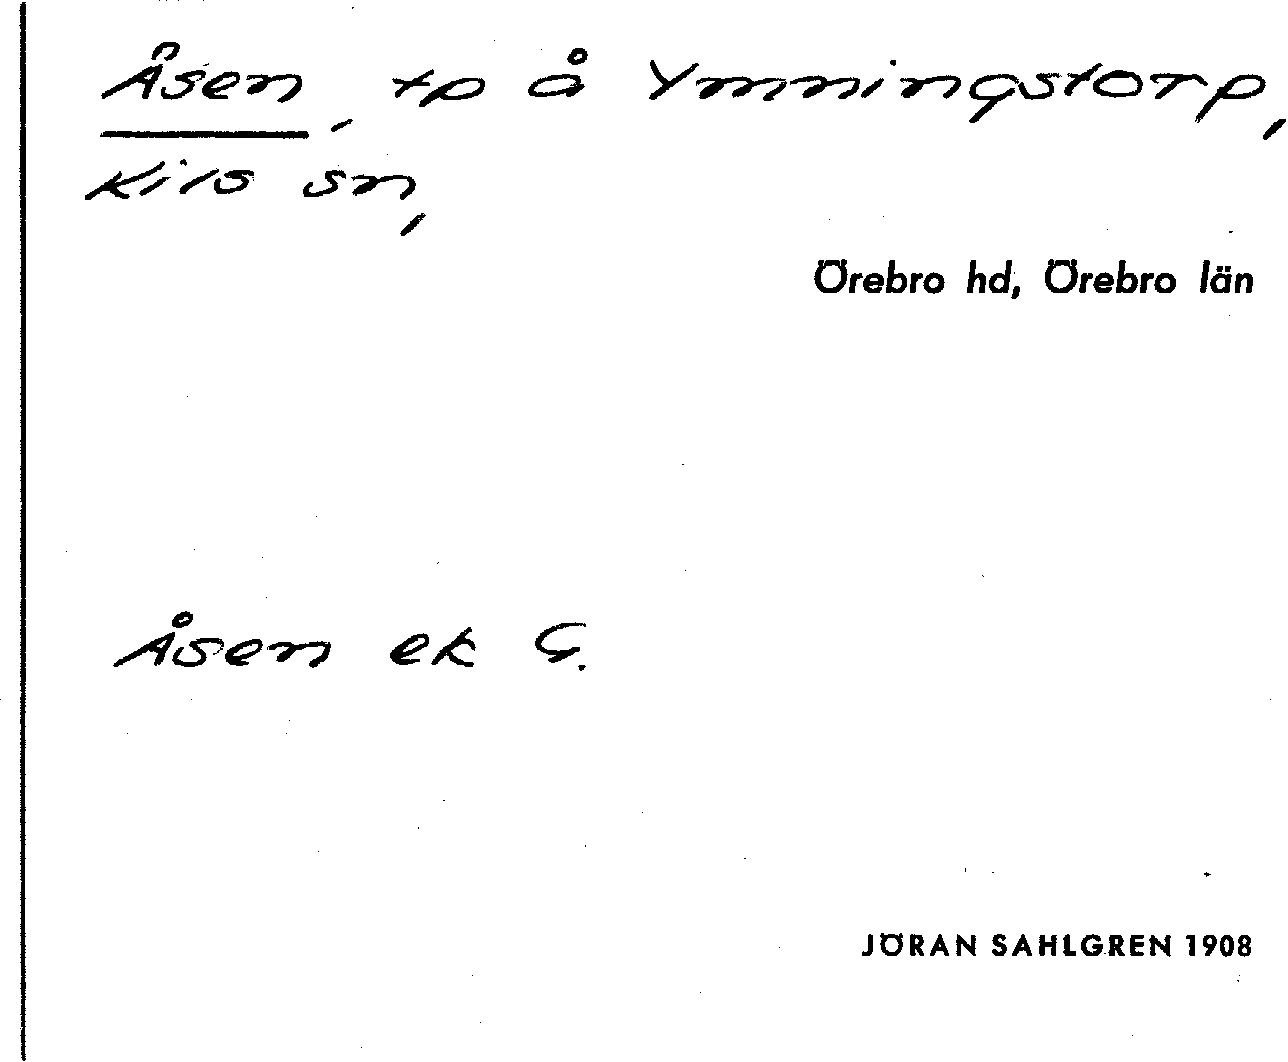 Åsen, tp å Ymningstorp,
Kils sn,
Örebro hd, Örebro län
Åsen ek G.
JÖRAN SAHLGREN 1908